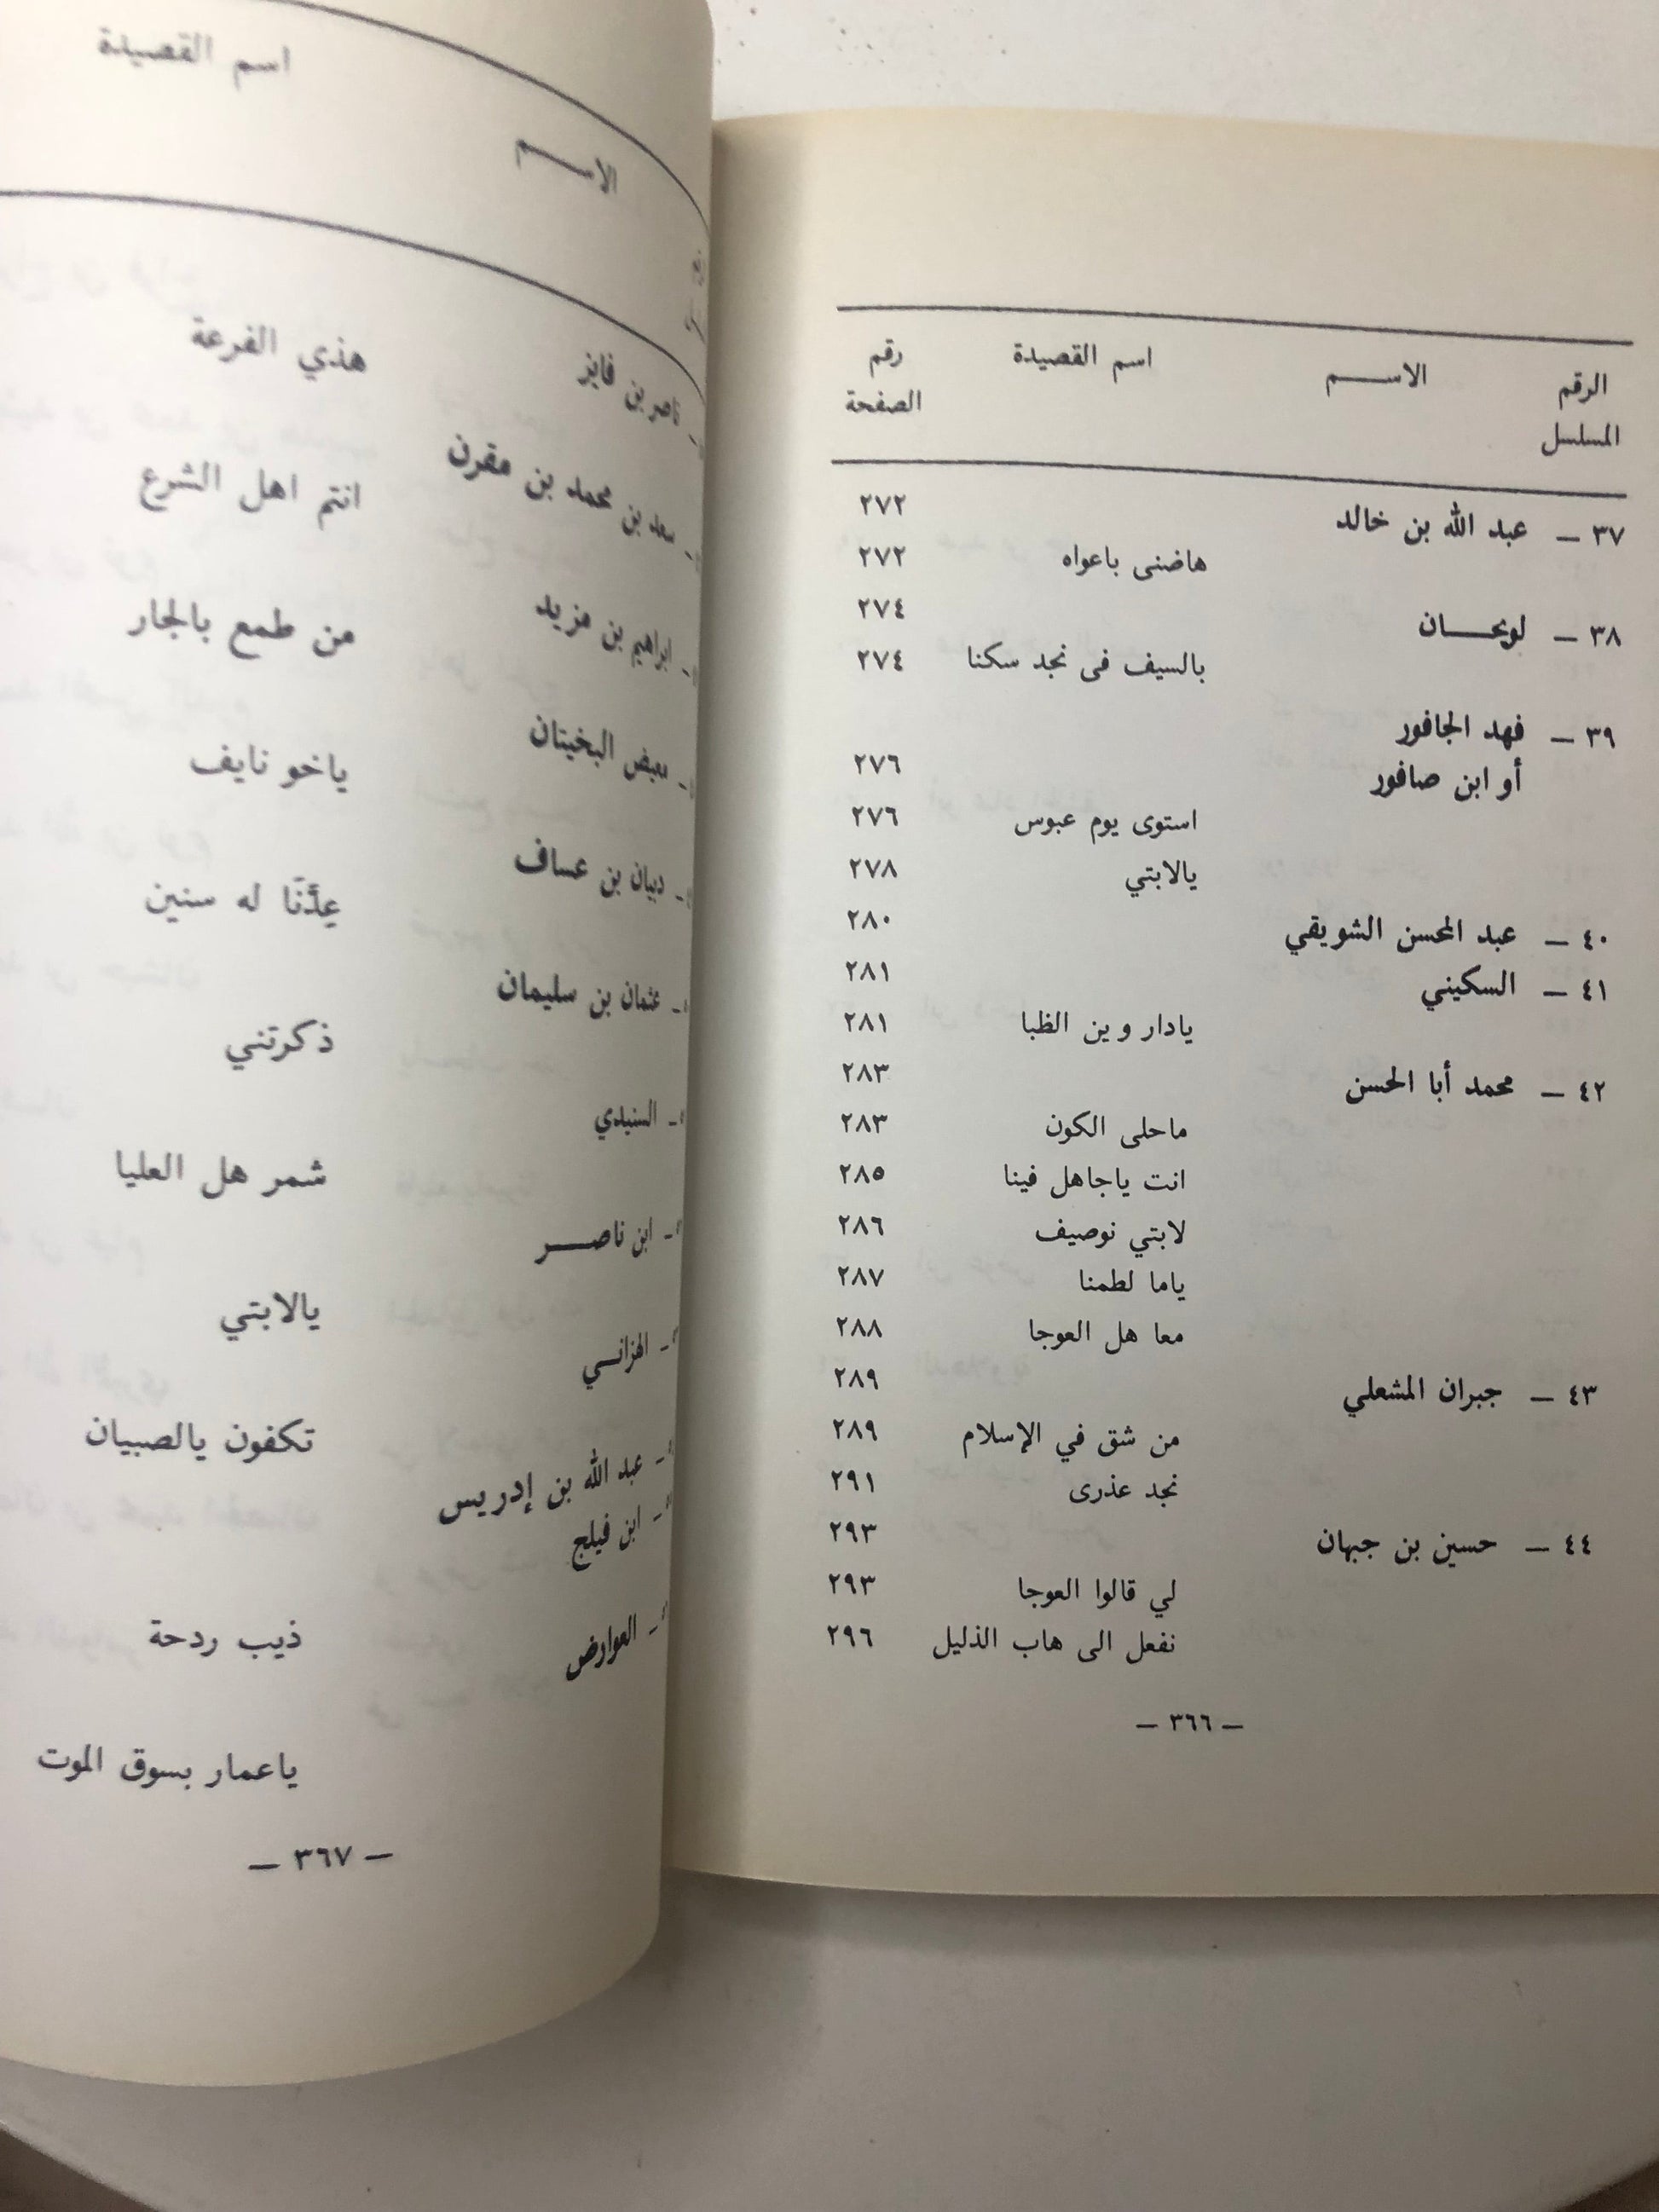 الرقم المسلسل الاســـم اسم القصيدة رقم الصفحة
٣٧ — عبد الله بن خالد ٢٧٢
هاضنى باعواه ٢٧٢
٣٨ — لويحـــان ٢٧٤
بالسيف فى نجد سكنا ٢٧٤
٣٩ — فهد الجافور
أو ابن صافور ٢٧٦
استوى يوم عبوس ٢٧٦
يالابتي ٢٧٨
٤٠ — عبد المحسن الشويقي ٢٨٠
٤١ — السكيني ٢٨١
يادار وين الظبا ٢٨١
٤٢ — محمد أبا الحسن ٢٨٣
ماحلى الكون ٢٨٣
انت ياجاهل فينا ٢٨٥
لابتي نوصيف ٢٨٦
ياما لطمنا ٢٨٧
معا هل العوجا ٢٨٨
٤٣ — جبران المشعلي ٢٨٩
من شق في الإسلام ٢٨٩
نجد عذرى ٢٩١
٤٤ — حسين بن جبهان ٢٩٣
لي قالوا العوجا ٢٩٣
نفعل الى هاب الذليل ٢٩٦
— ٣٦٦ —
الاســـم اسم القصيدة
ناصر بن فايز
هذي الفرعة
سعد بن محمد بن مقرن
انتم اهل الشرع
ابراهيم بن مزيد
من طمع بالجار
معيض البخيتان
ياخو نايف
دبيان بن عساف
عِدَّنَا له سنين
عثمان بن سليمان
ذكرتني
السنيدي
شمر هل العليا
ابن ناصـــر
يالابتي
الهزانــي
تكفون يالصبيان
عبد الله بن إدريس
ابن فيلج
ذيب ردحة
العوارض
ياعمار بسوق الموت
— ٣٦٧ —